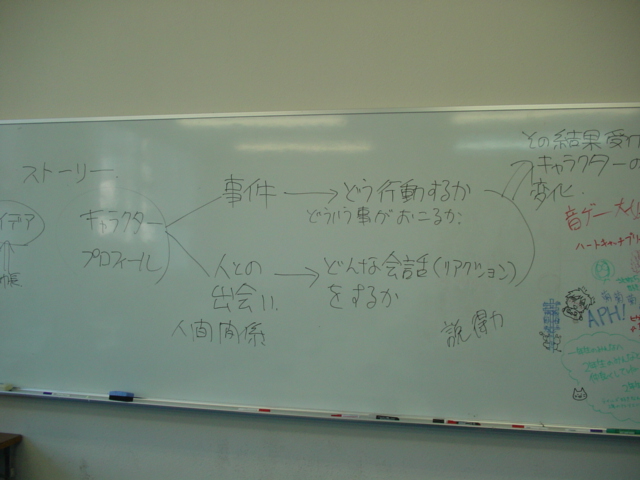 ストーリー
イデア
帳
キャラクター
プロフィール
事件
どう行動するか
どういう事がおこるか
人との
出会い
人間関係
どんな会話(リアクション)
をするか
説得力
その結果受け
キャラクターの
変化
音ゲー大
ハートキャッチプリ
APH!